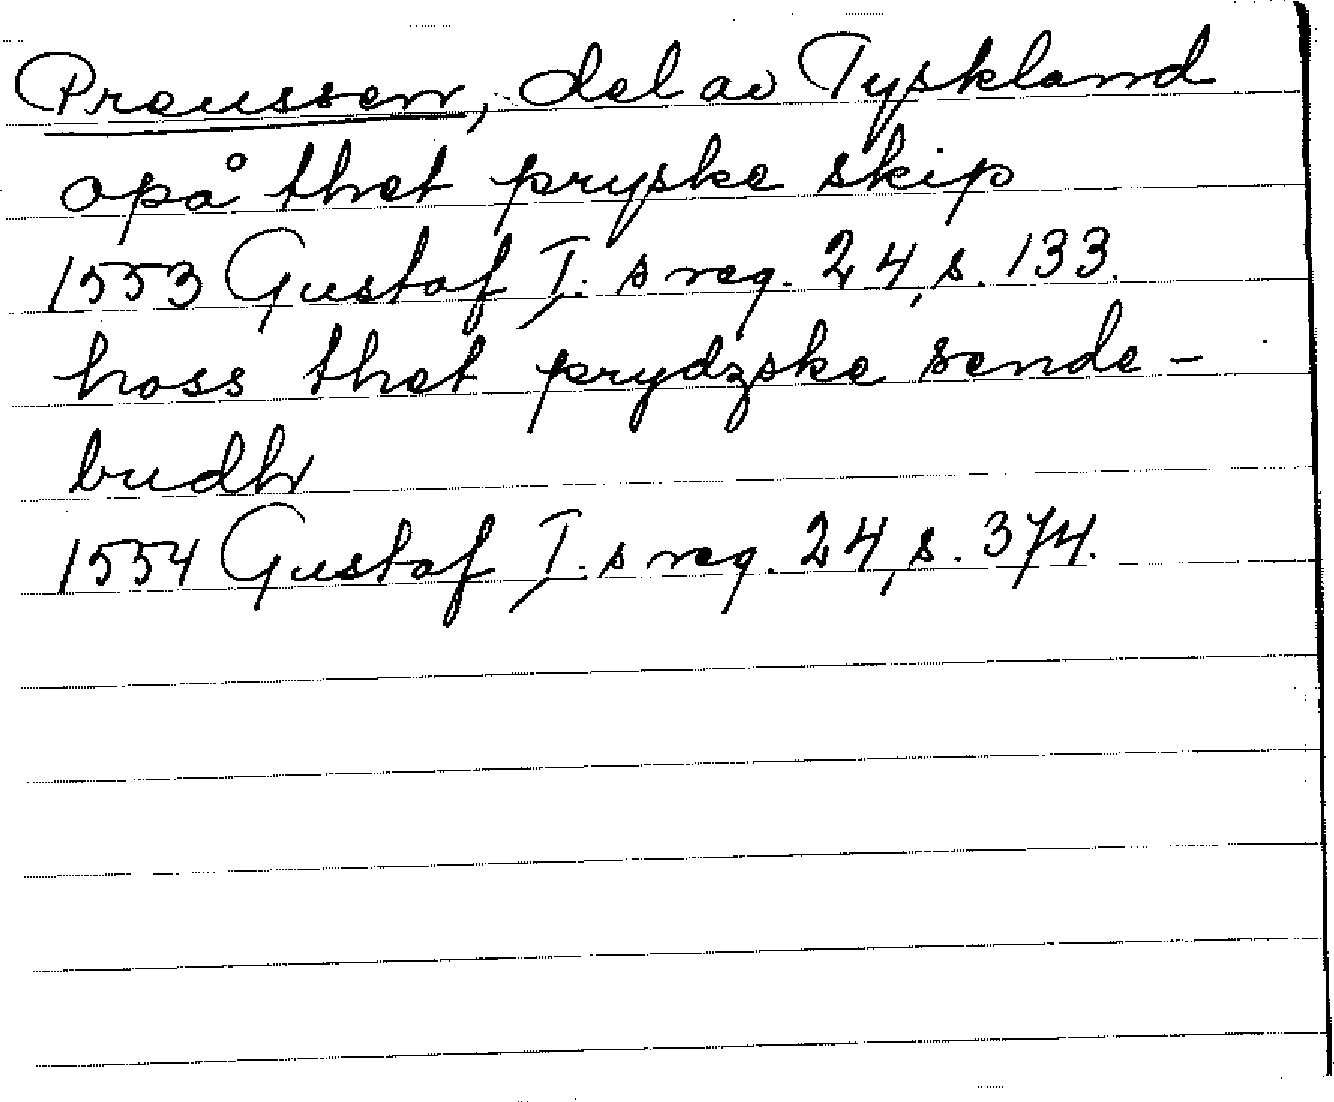 Preussen, del av Tyskland
opå thet pryske skip
1553 Gustaf I:s reg. 24, s. 133.
hoss thet prydzske sende-
budh
1554 Gustaf I:s reg. 24, s. 374.